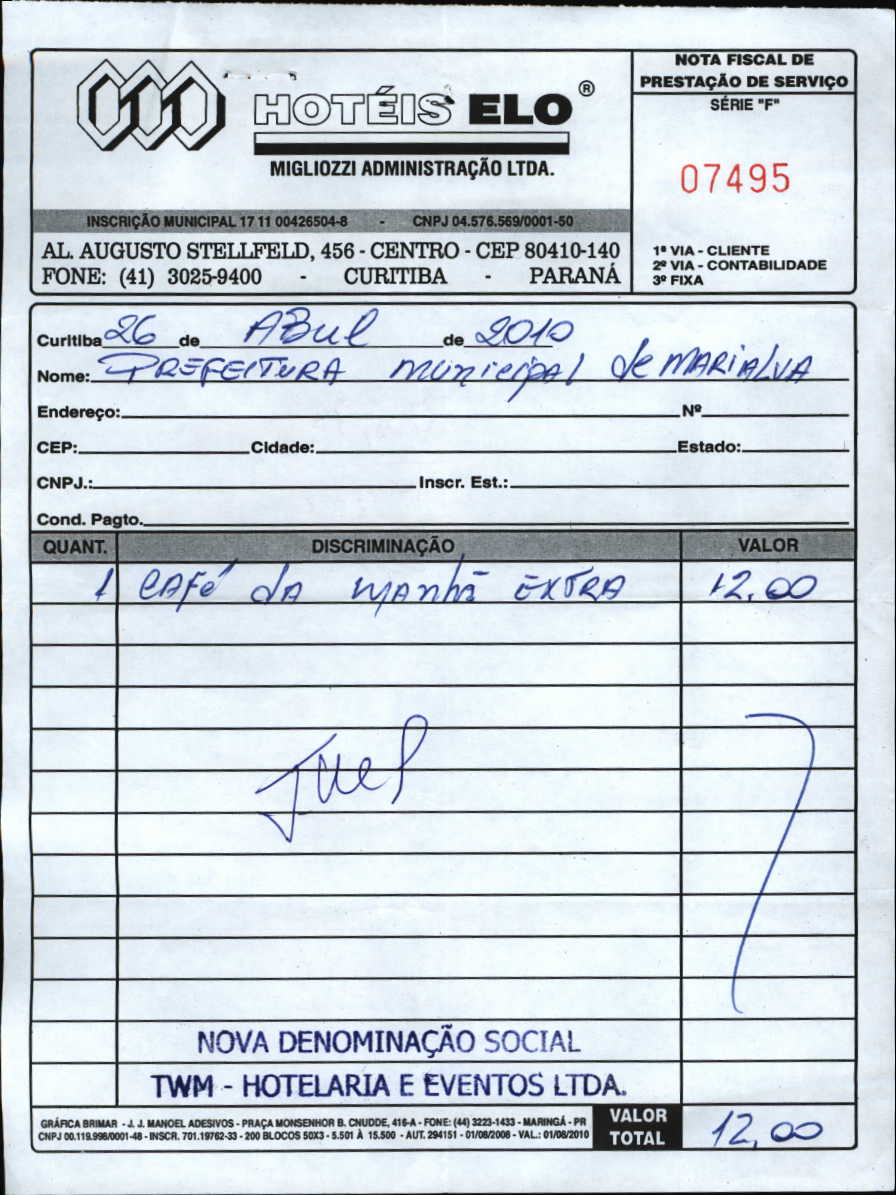 HOTÉIS ELO ®
MIGLIOZZI ADMINISTRAÇÃO LTDA.
INSCRIÇÃO MUNICIPAL 17 11 00426504-8 - CNPJ 04.576.569/0001-50
AL. AUGUSTO STELLFELD, 456 - CENTRO - CEP 80410-140
FONE: (41) 3025-9400 - CURITIBA - PARANÁ
NOTA FISCAL DE
PRESTAÇÃO DE SERVIÇO
SÉRIE "F"
07495
1ª VIA - CLIENTE
2ª VIA - CONTABILIDADE
3ª FIXA
Curitiba 26 de ABril de 2010
Nome: PREFEITURA municipal de MARIALVA
Endereço: Nº
CEP: Cidade: Estado:
CNPJ.: Inscr. Est.:
Cond. Pagto.
QUANT. DISCRIMINAÇÃO VALOR
1 CAfé dA MAnhã EXTRA 12,00
NOVA DENOMINAÇÃO SOCIAL
TWM - HOTELARIA E EVENTOS LTDA.
GRÁFICA BRIMAR - J. J. MANOEL ADESIVOS - PRAÇA MONSENHOR B. CNUDDE, 416-A - FONE: (44) 3223-1433 - MARINGÁ - PR
CNPJ 00.119.998/0001-48 - INSCR. 701.19762-33 - 200 BLOCOS 50X3 - 5.501 À 15.500 - AUT. 294151 - 01/08/2008 - VAL.: 01/08/2010
VALOR
TOTAL 12,00